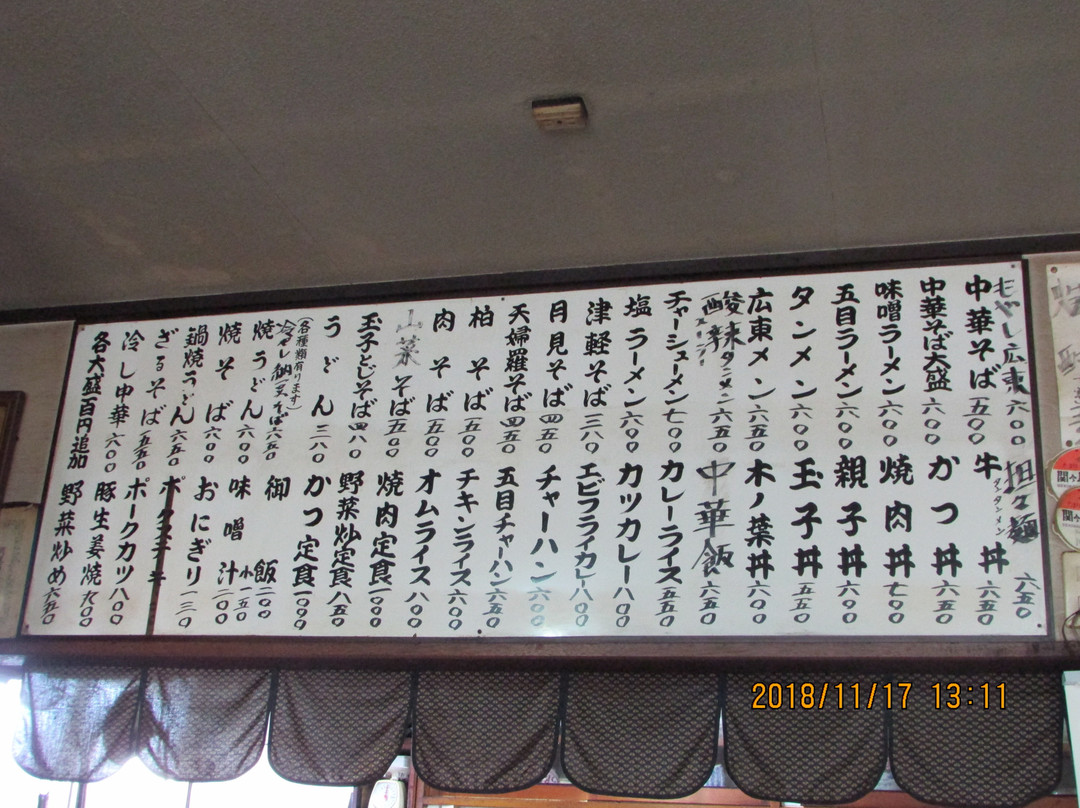 もやし広東 六〇〇
中華そば 五〇〇
中華そば大盛 六〇〇
味噌ラーメン 六〇〇
五目ラーメン 六〇〇
タンメン 六〇〇
広東メン 六五〇
酸辣タンメン 六五〇
チャーシューメン 七〇〇
塩ラーメン 六〇〇
津軽そば 三八〇
月見そば 四五〇
天婦羅そば 四五〇
柏そば 五〇〇
肉そば 五〇〇
山菜そば 五〇〇
玉子とじそば 四八〇
うどん 三八〇
(各種類有ります)
冷やし納豆そば 六五〇
焼うどん 六〇〇
焼そば 六〇〇
鍋焼うどん 六五〇
ざるそば 五五〇
冷し中華 六〇〇
各大盛百円追加
担々麺 六五〇
タンタンメン
牛丼 六五〇
かつ丼 六五〇
焼肉丼 七〇〇
親子丼 六〇〇
玉子丼 五五〇
木ノ葉丼 六八〇
中華飯 六五〇
カレーライス 五五〇
カツカレー 八〇〇
エビフライカレー 八〇〇
チャーハン 六〇〇
五目チャーハン 六五〇
チキンライス 六〇〇
オムライス 八〇〇
焼肉定食 一〇〇〇
野菜炒定食 八五〇
かつ定食 一〇〇〇
御飯 二〇〇
小 一五〇
味噌汁 二〇〇
おにぎり 一三〇
ポークカツ 八〇〇
豚生姜焼 九〇〇
野菜炒め 六五〇
2018/11/17 13:11